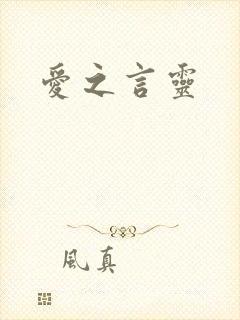 愛之言靈
風真